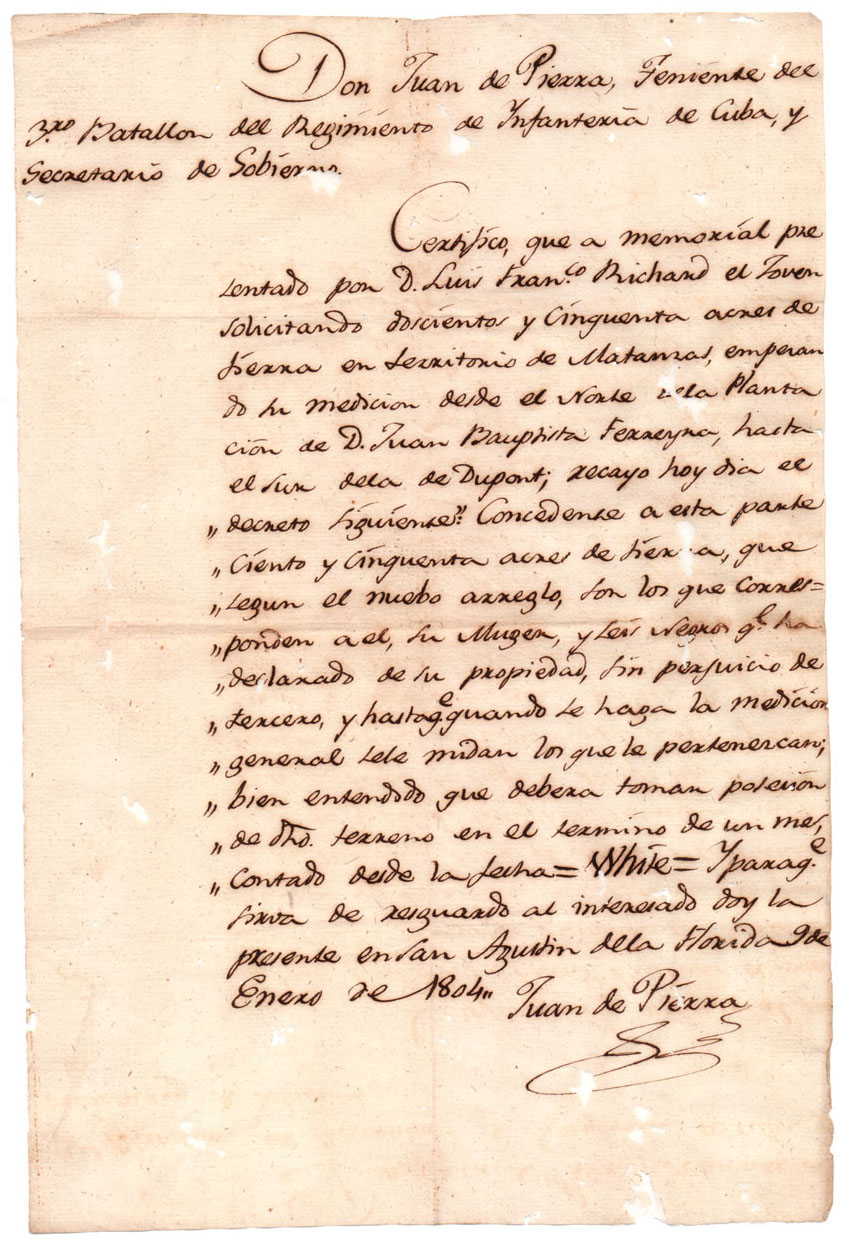 Don Juan de Pierra, Teniente del
3.ro Batallon del Regimiento de Infanteria de Cuba, y
Secretario de Gobierno.
Certifico, que a memorial pre
sentado por D. Luis Fran.co Richard el Joven
solicitando doscientos y Cinquenta acres de
tierra en territorio de Matanzas, empezan
do su medicion desde el Norte dela Planta
ción de D. Juan Bauptista Ferreyra, hasta
el sur dela de Dupont; recayo hoy dia el
„ decreto siguiente." Concedense a esta parte
„ Ciento y cinquenta acres de tierra, que
„ segun el nuebo arreglo, son los que corres=
„ ponden a el, su Muger, y seis Negros q.e ha
„ declarado de su propiedad, sin perjuicio de
„ tercero, y hasta q.e quando se haga la medicion
„ general sele midan los que le pertenescan;
„ bien entendido que debera tomar poseción
„ de dho. terreno en el termino de un mes,
„ Contado desde la fecha = White = Y para q.e
sirva de resguardo al interesado doy la
presente en San Agustin dela Florida 9 de
Enero de 1804„ Juan de Pierra